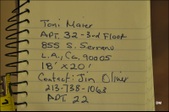 Toni Maier
APT 32-3rd Floor
855 S. Serrano
L.A., Ca. 90005
18' x 20'
Contact: Jim Olivier
213-738-1068
APT 22